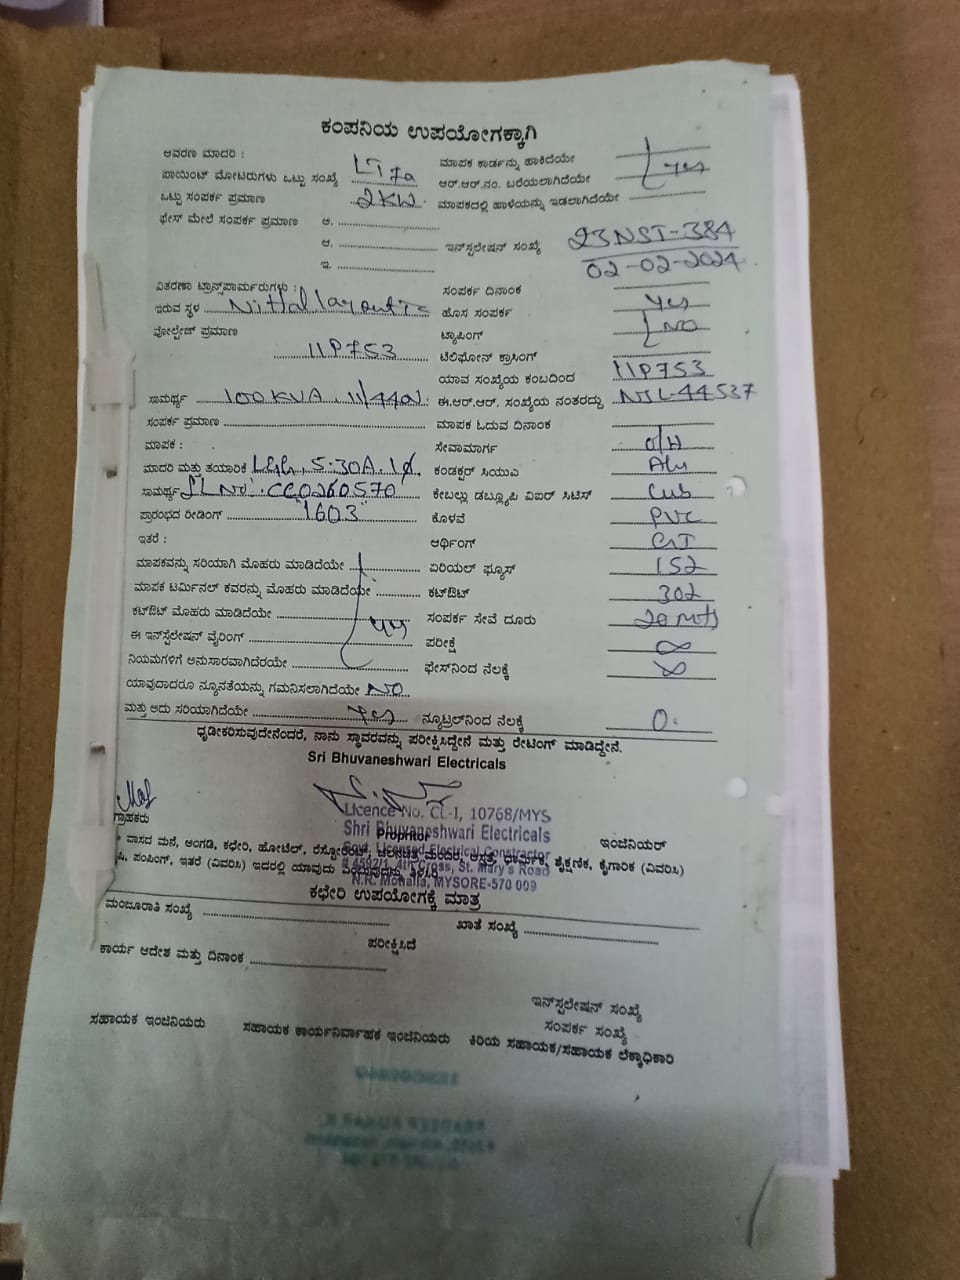 ಕಂಪನಿಯ ಉಪಯೋಗಕ್ಕಾಗಿ
ಆವರಣ ಮಾದರಿ : ಮಾಪಕ ಕಾರ್ಡನ್ನು ಹಾಕಿದೆಯೇ
ಪಾಯಿಂಟ್ ಮೋಟರುಗಳು ಒಟ್ಟು ಸಂಖ್ಯೆ LT7a ಆರ್.ಆರ್.ನಂ. ಬರೆಯಲಾಗಿದೆಯೇ yes
ಒಟ್ಟು ಸಂಪರ್ಕ ಪ್ರಮಾಣ 2KW. ಮಾಪಕದಲ್ಲಿ ಹಾಳೆಯನ್ನು ಇಡಲಾಗಿದೆಯೇ
ಫೇಸ್ ಮೇಲೆ ಸಂಪರ್ಕ ಪ್ರಮಾಣ ಅ.
ಆ. ಇನ್‌ಸ್ಟಲೇಷನ್ ಸಂಖ್ಯೆ 23NST-384
ಇ. 02-02-2024
ವಿತರಣಾ ಟ್ರಾನ್ಸ್‌ಪಾರ್ಮರುಗಳು : ಸಂಪರ್ಕ ದಿನಾಂಕ
ಇರುವ ಸ್ಥಳ Nittal layout ಹೊಸ ಸಂಪರ್ಕ Yes
ವೋಲ್ಟೇಜ್ ಪ್ರಮಾಣ ಟ್ಯಾಪಿಂಗ್ NO
11P753 ಟೆಲಿಫೋನ್ ಕ್ರಾಸಿಂಗ್
ಯಾವ ಸಂಖ್ಯೆಯ ಕಂಬದಿಂದ 11P753
ಸಾಮರ್ಥ್ಯ 100KVA, 11/440V. ಈ.ಆರ್.ಆರ್. ಸಂಖ್ಯೆಯ ನಂತರದ್ದು NJL-44537
ಸಂಪರ್ಕ ಪ್ರಮಾಣ ಮಾಪಕ ಓದುವ ದಿನಾಂಕ
ಮಾಪಕ : ಸೇವಾಮಾರ್ಗ O/H
ಮಾದರಿ ಮತ್ತು ತಯಾರಿಕೆ L&G, 5-30A. 1ϕ. ಕಂಡಕ್ಟರ್ ಸಿಯುಎ Alu
ಸಾಮರ್ಥ್ಯ SL No: CC0260570 ಕೇಬಲ್ಲು ಡಬ್ಲ್ಯೂಪಿ ವಿಐರ್ ಸಿಟಿಸ್ Cub
ಪ್ರಾರಂಭದ ರೀಡಿಂಗ್ "1603" ಕೊಳವೆ PVC
ಇತರೆ : ಆರ್ಥಿಂಗ್ GI
ಮಾಪಕವನ್ನು ಸರಿಯಾಗಿ ಮೊಹರು ಮಾಡಿದೆಯೇ ಏರಿಯಲ್ ಫ್ಯೂಸ್ 152
ಮಾಪಕ ಟರ್ಮಿನಲ್ ಕವರನ್ನು ಮೊಹರು ಮಾಡಿದೆಯೇ ಕಟ್‌ಔಟ್ 302
ಕಟ್‌ಔಟ್ ಮೊಹರು ಮಾಡಿದೆಯೇ ಸಂಪರ್ಕ ಸೇವೆ ದೂರು 20 mts
ಈ ಇನ್‌ಸ್ಟಲೇಷನ್ ವೈರಿಂಗ್ ಪರೀಕ್ಷೆ ∞
ನಿಯಮಗಳಿಗೆ ಅನುಸಾರವಾಗಿದೆರಯೇ ಫೇಸ್‌ನಿಂದ ನೆಲಕ್ಕೆ ∞
ಯಾವುದಾದರೂ ನ್ಯೂನತೆಯನ್ನು ಗಮನಿಸಲಾಗಿದೆಯೇ NO
ಮತ್ತು ಅದು ಸರಿಯಾಗಿದೆಯೇ Yes ನ್ಯೂಟ್ರಲ್‌ನಿಂದ ನೆಲಕ್ಕೆ 0.
ಧೃಡೀಕರಿಸುವುದೇನೆಂದರೆ, ನಾನು ಸ್ಥಾವರವನ್ನು ಪರೀಕ್ಷಿಸಿದ್ದೇನೆ ಮತ್ತು ರೇಟಿಂಗ್ ಮಾಡಿದ್ದೇನೆ.
Sri Bhuvaneshwari Electricals
Licence No. CL-I, 10768/MYS
Shri Bhuvaneshwari Electricals
ಗ್ರಾಹಕರು Propritor ಇಂಜಿನಿಯರ್
Govt. Licensed Electrical Constractor
# 4592/1, 4th Cross, St. Mary's Road
N.R. Mohalla, MYSORE-570 009
* ವಾಸದ ಮನೆ, ಅಂಗಡಿ, ಕಛೇರಿ, ಹೋಟೆಲ್, ರೆಸ್ಟೋರೆಂಟ್, ಚಲನಚಿತ್ರ ಮಂದಿರ, ಆಸ್ಪತ್ರೆ, ಧಾರ್ಮಿಕ, ಶೈಕ್ಷಣಿಕ, ಕೈಗಾರಿಕ (ವಿವರಿಸಿ)
ಪಿ, ಪಂಪಿಂಗ್, ಇತರೆ (ವಿವರಿಸಿ) ಇದರಲ್ಲಿ ಯಾವುದು ತಿಳಿಸಿ
ಕಛೇರಿ ಉಪಯೋಗಕ್ಕೆ ಮಾತ್ರ
ಮಂಜೂರಾತಿ ಸಂಖ್ಯೆ ಖಾತೆ ಸಂಖ್ಯೆ
ಪರೀಕ್ಷಿಸಿದೆ
ಕಾರ್ಯ ಆದೇಶ ಮತ್ತು ದಿನಾಂಕ
ಇನ್‌ಸ್ಟಲೇಷನ್ ಸಂಖ್ಯೆ
ಸಂಪರ್ಕ ಸಂಖ್ಯೆ
ಸಹಾಯಕ ಇಂಜಿನಿಯರು ಸಹಾಯಕ ಕಾರ್ಯನಿರ್ವಾಹಕ ಇಂಜಿನಿಯರು ಕಿರಿಯ ಸಹಾಯಕ/ಸಹಾಯಕ ಲೆಕ್ಕಾಧಿಕಾರಿ